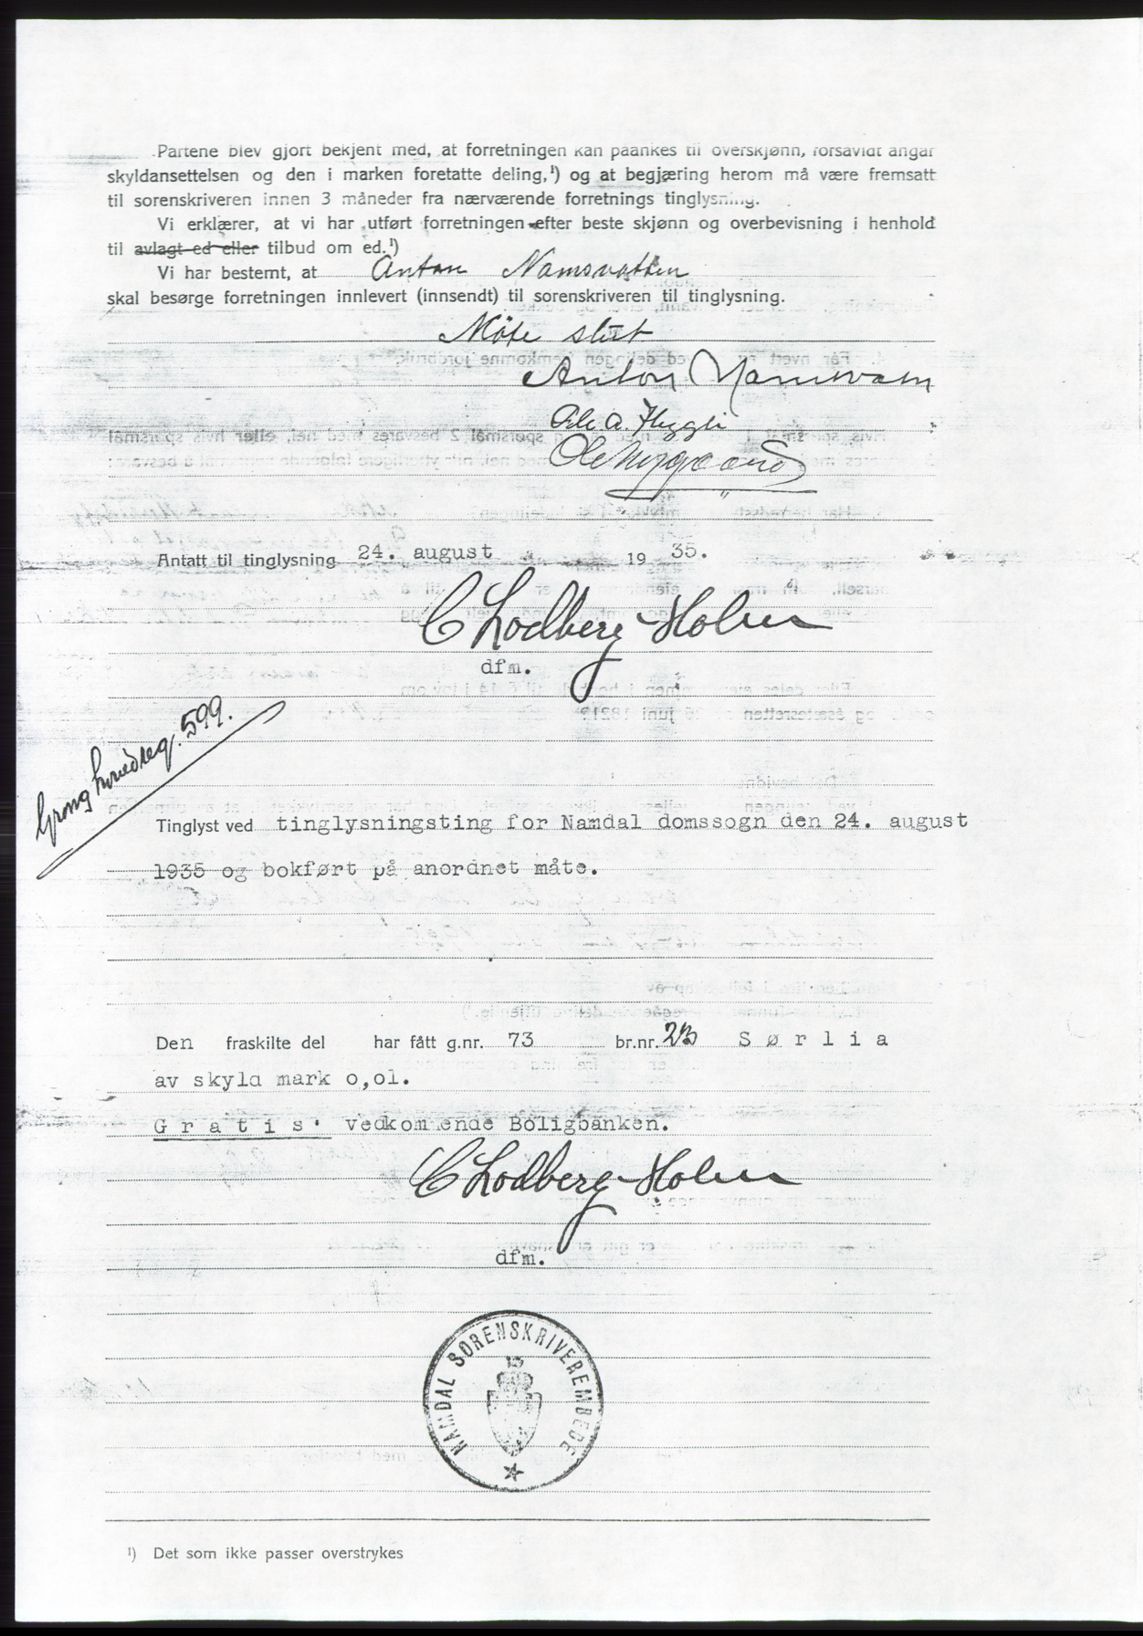 Partene blev gjort bekjent med, at forretningen kan paankes til overskjønn, forsåvidt angår
skyldansettelsen og den i marken foretatte deling,¹) og at begjæring herom må være fremsatt
til sorenskriveren innen 3 måneder fra nærværende forretnings tinglysning.
Vi erklærer, at vi har utført forretningen efter beste skjønn og overbevisning i henhold
til avlagt ed eller tilbud om ed.¹)
Vi har bestemt, at Anton Namsvatten
skal besørge forretningen innlevert (innsendt) til sorenskriveren til tinglysning.
Møte slut
Anton Namsvatn
Ole A.
Ole Nyggaard
Antatt til tinglysning 24. august 19 35.
C Lodberg-Holm
dfm.
Grong hovedreg. 599.
Tinglyst ved tinglysningsting for Namdal domssogn den 24. august
1935 og bokført på anordnet måte.
Den fraskilte del har fått g.nr. 73 br.nr. Sørlia
av skyld mark o,ol.
Gratis vedkommende Boligbanken.
C Lodberg-Holm
dfm.
NAMDAL SORENSKRIVEREMBEDE
¹) Det som ikke passer overstrykes